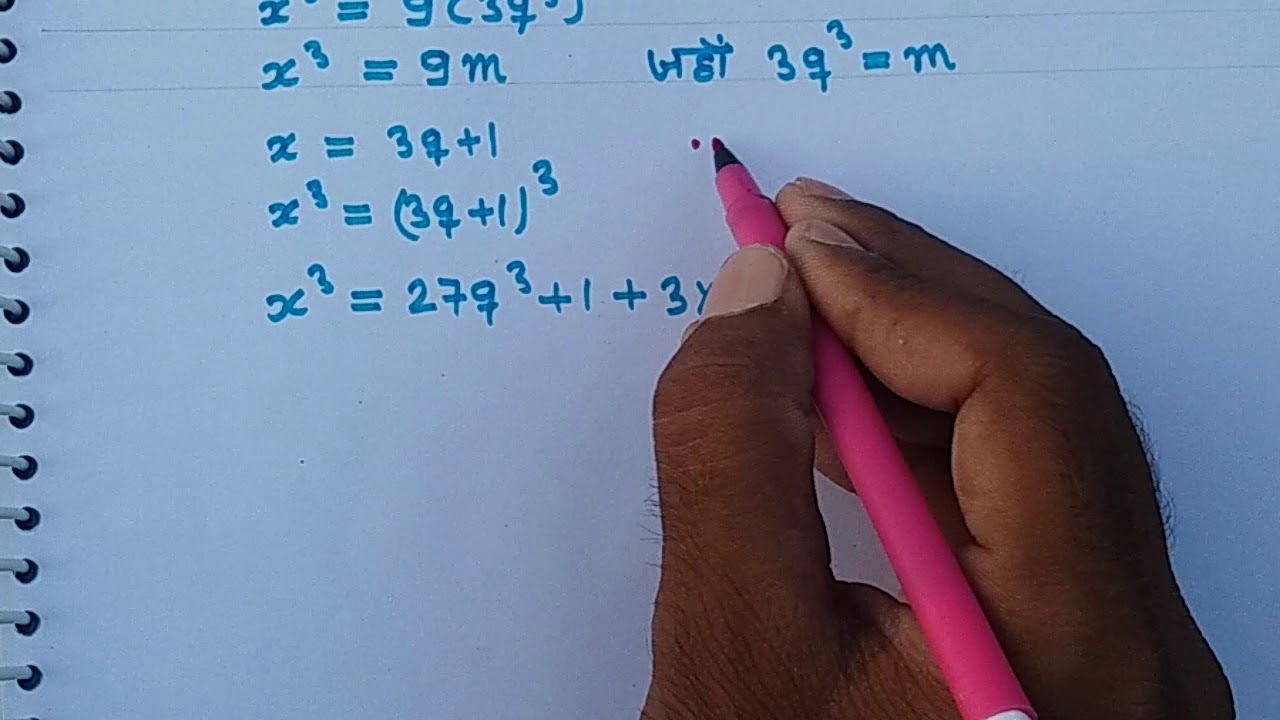 x³ = 9(3q³)
x³ = 9m जहाँ 3q³ = m
x = 3q+1
x³ = (3q+1)³
x³ = 27q³+1+3x